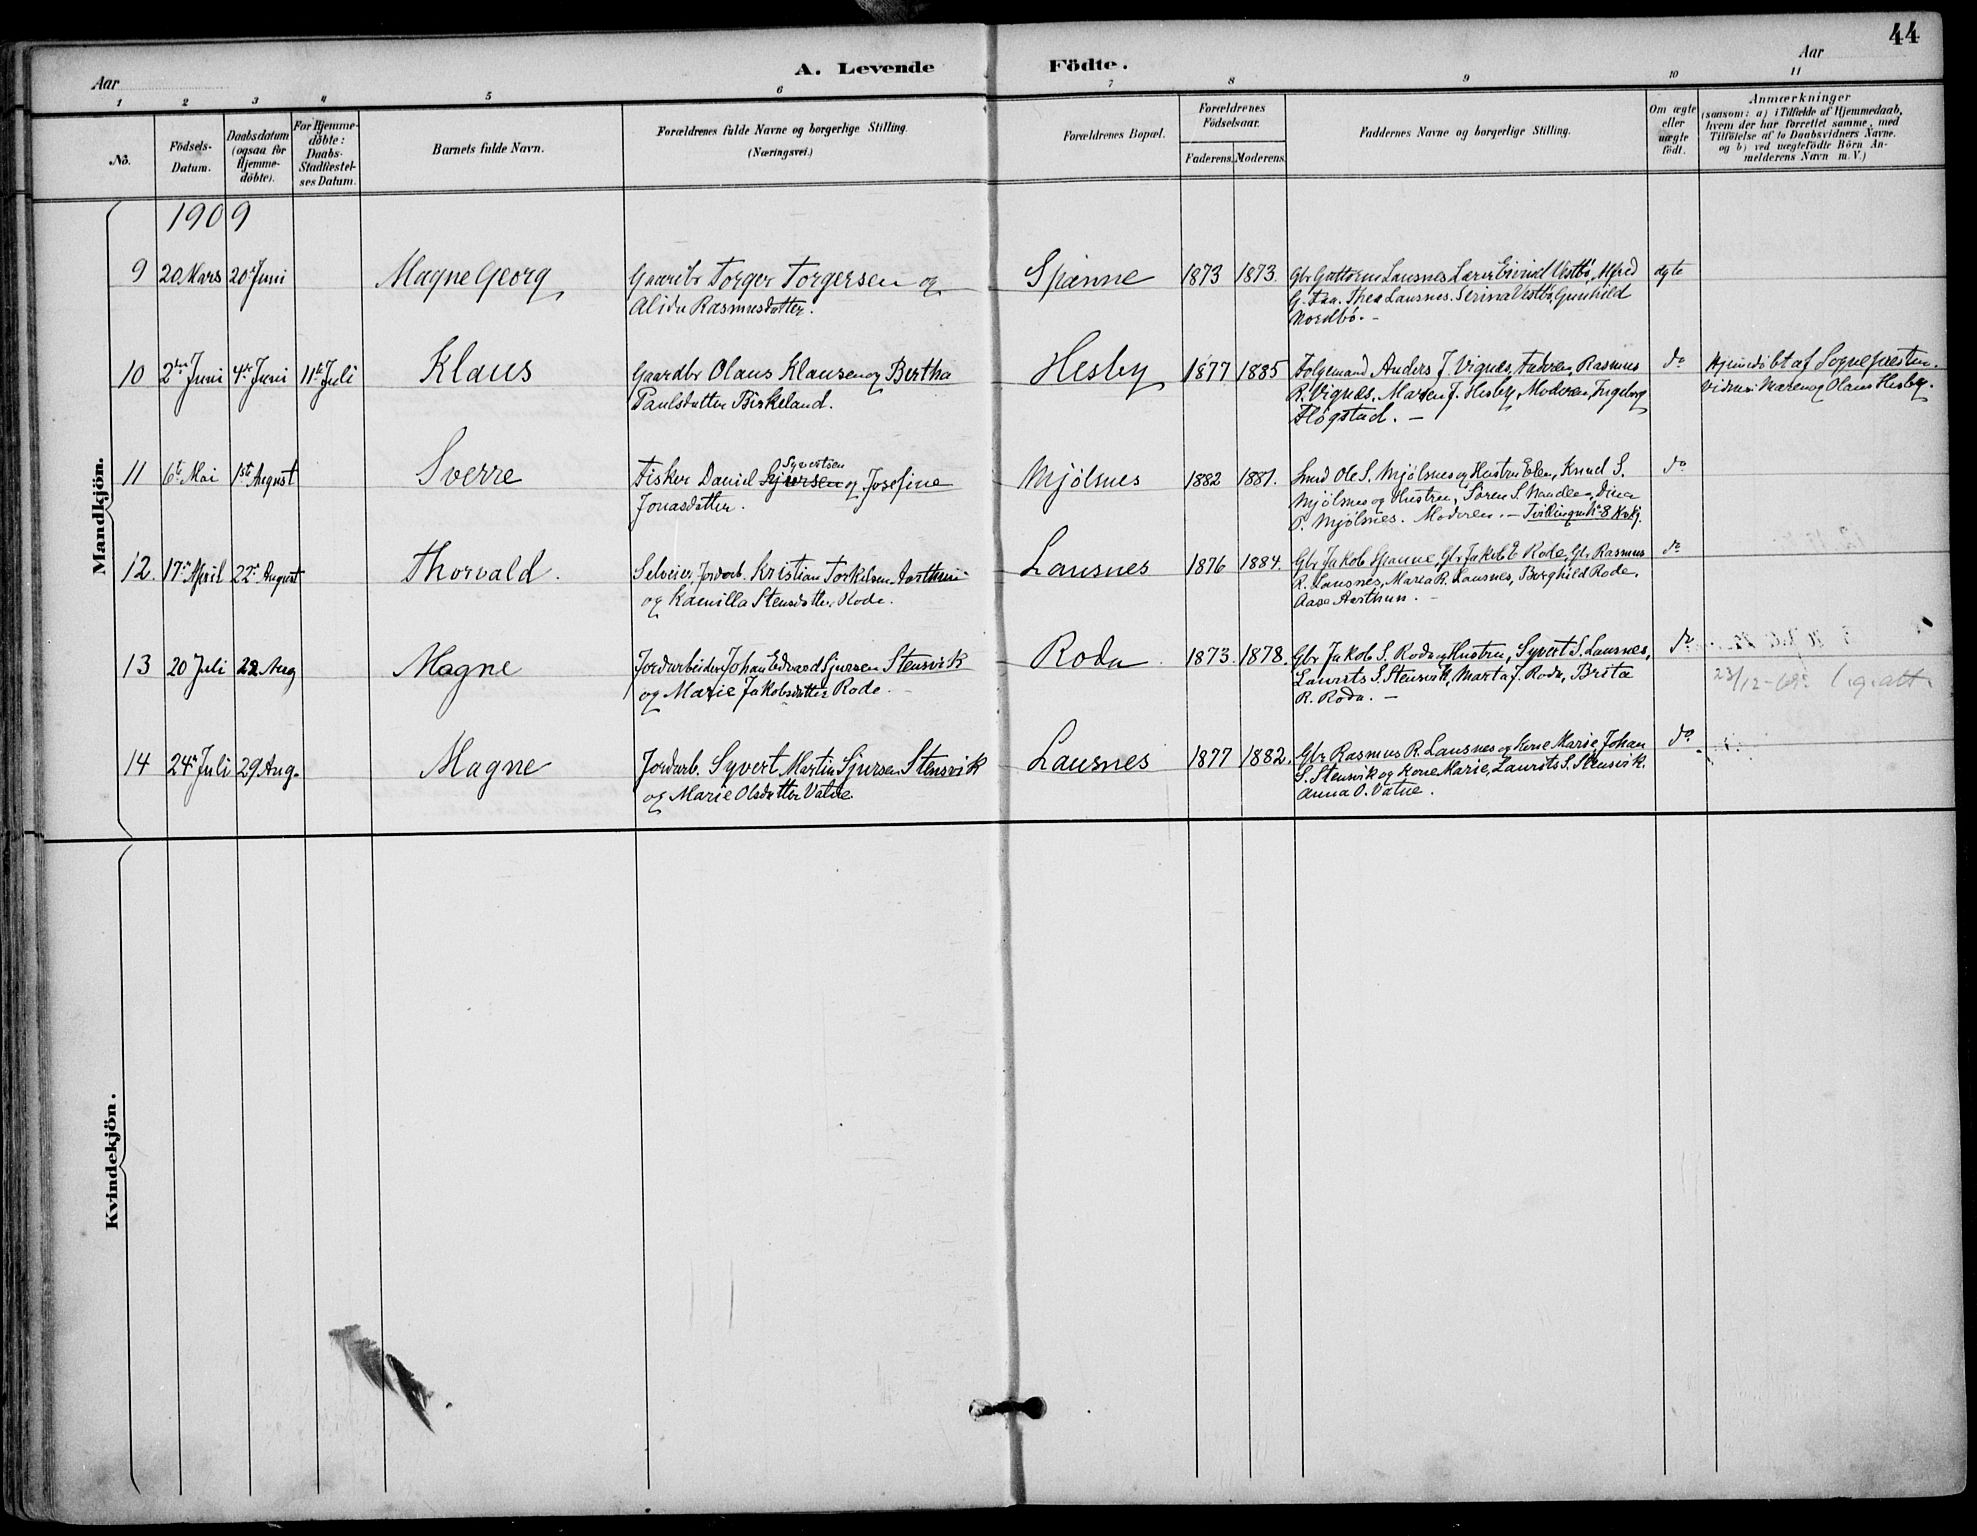 44
Aar
A. Levende Födte.
Aar
1 2 3 4 5 6 7 8 9 10 11
No.
Födsels-
Datum.
Daabsdatum
(ogsaa for
Hjemme-
döbte).
For Hjemme-
döbte:
Daabs-
Stadfæstel-
ses Datum.
Barnets fulde Navn.
Forældrenes fulde Navne og borgerlige Stilling.
(Næringsvei.)
Forældrenes Bopæl.
Forældrenes
Födselsaar.
Faderens. Moderens.
Faddernes Navne og borgerlige Stilling.
Om ægte
eller
uægte
födt.
Anmærkninger
(saasom: a) i Tilfælde af Hjemmedaab,
hvem der har forrettet samme, med
Tilföielse af to Daabsvidners Navne.
og b) ved uægtefödte Börn An-
melderens Navn m. V.)
Mandkjön.
1909
9 20 Mars 20 Juni Magne Georg Gaardbr Torger Torgersen og Spanne 1873 1873. Gbr Guttorm Lausnes Lærer Eivind Vestbö, Alfred ægte
Alida Rasmusdatter. G. Thea Lausnes. Serina Vestbö, Gunhild
Nordbö. -
10 2den Juni 4de Juni 11te Juli Klaus Gaardbr Olaus Klausen og Bertha Hesby 1877 1885 Folgemand Anders J. Vignes, Faderen, Rasmus do Hjemdöbt af Sognepræsten.
Paulsdatter Birkeland. R. Vignes, Maren J. Hesby, Moderen, Ingeborg Vidner: Maren og Olaus Hesby.
Flögstad. -
11 6te Mai 1ste August Sverre Fisker Daniel Sjursen Syvertsen og Josefine Mjölsnes 1882 1881. Smed Ole S. Mjölsnes og Hustru Elen, Knud S. do
Jonasdatter. Mjölsnes og Hustru, Sören S. Dina
Mjölsnes. Moderen. - Tvilling m No 8 Kvkj.
12. 17de April 22de August Thorvald. Selveier, Jordarb. Kristian Torkelsen Aarthun Lausnes 1876 1884. Gbr Jakob Spanne, Gbr Jakob E. Rode, Gbr Rasmus do
og Kamilla Stensdatter Rode. R. Lausnes, Maria R. Lausnes, Borghild Rode,
Aase Aarthun. -
13 20 Juli 22 Aug Magne Jordarbeider Johan Edvard Sjursen Stensvik Roda 1873. 1878. Gbr Jakob S. Roda og Hustru, Syvert S. Lausnes, do
og Marie Jakobsdatter Rode. - Laurits S. Stensvik, Marta J. Roda, Brita
R. Roda. -
14 24de Juli 29 Aug. Magne Jordarb. Syvert Martin Sjursen Stensvik Lausnes 1877 1882. Gbr Rasmus R. Lausnes og Kone Marie, Johan do
og Marie Olsdatter Vatne. S. Stensvik og Kone Marie, Laurits S. Stensvik.
Anna O. Vatne.
Kvindekjön.